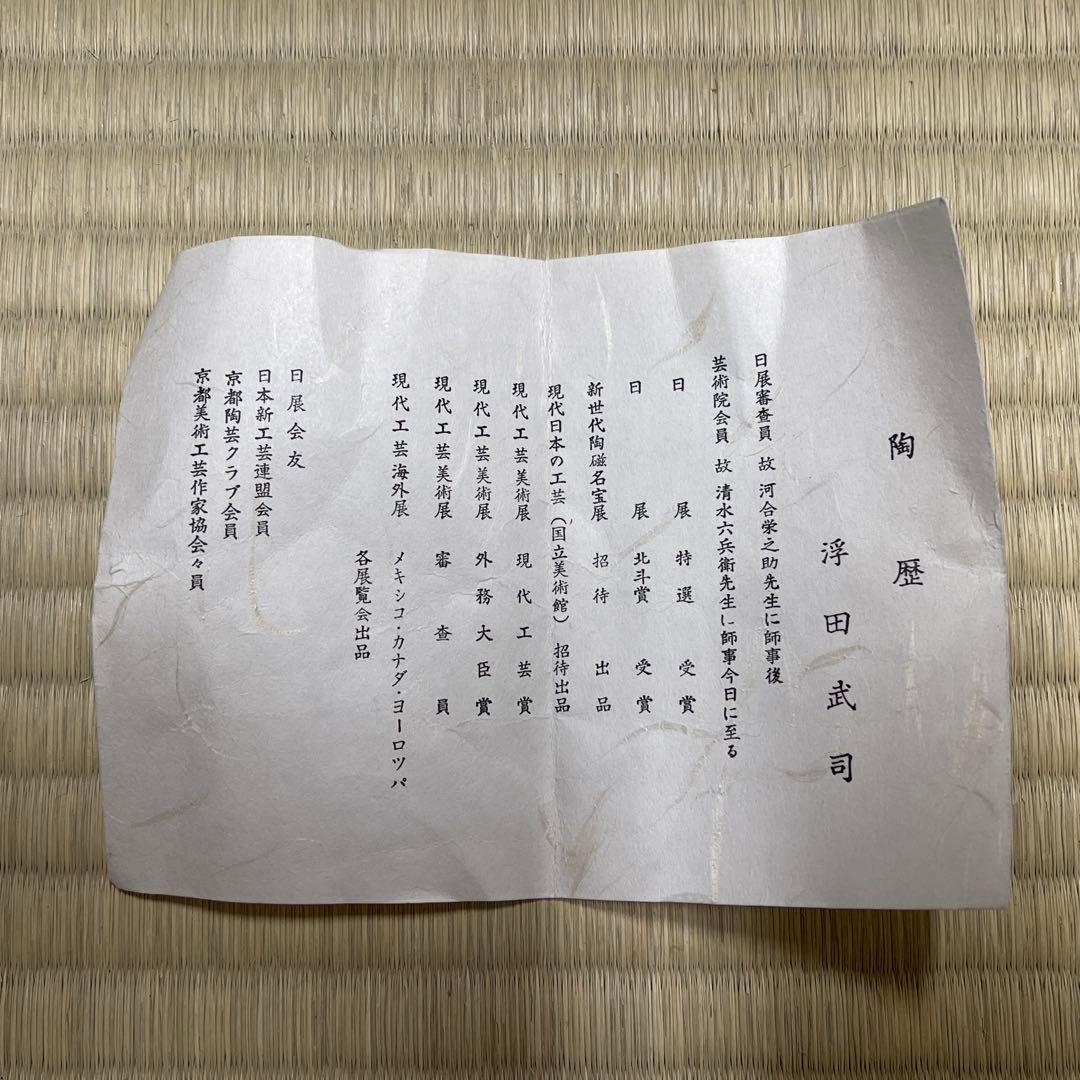 陶歴
浮田武司
日展審査員 故 河合栄之助先生に師事後
芸術院会員 故 清水六兵衛先生に師事今日に至る
日展 特選 受賞
日展 北斗賞 受賞
新世代陶磁名宝展 招待出品
現代日本の工芸(国立美術館) 招待出品
現代工芸美術展 現代工芸賞
現代工芸美術展 外務大臣賞
現代工芸美術展 審査員
現代工芸海外展 メキシコ・カナダ・ヨーロツパ
各展覧会出品
日展会友
日本新工芸連盟会員
京都陶芸クラブ会員
京都美術工芸作家協会々員